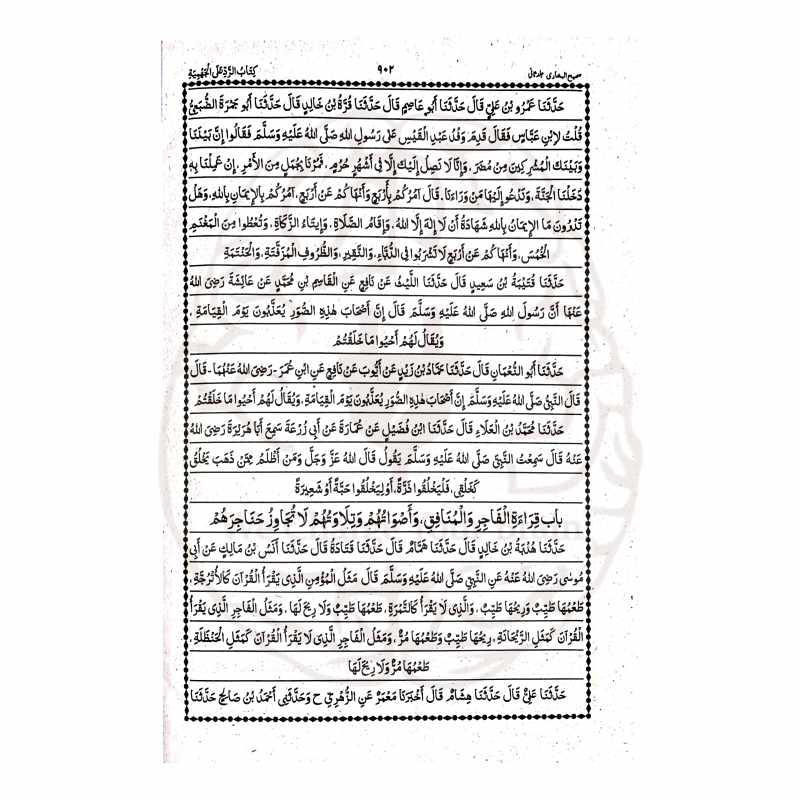 صحیح البخاری جلد ثانی ۹۰۲ كِتَابُ الرَّدِّ عَلَى الْجَهْمِيَّةِ
حَدَّثَنَا عَمْرُو بْنُ عَلِيٍّ قَالَ حَدَّثَنَا أَبُو عَاصِمٍ قَالَ حَدَّثَنَا قُرَّةُ بْنُ خَالِدٍ قَالَ حَدَّثَنَا أَبُو جَمْرَةَ الضُّبَعِيُّ
قُلْتُ لِابْنِ عَبَّاسٍ فَقَالَ قَدِمَ وَفْدُ عَبْدِ الْقَيْسِ عَلَى رَسُولِ اللهِ صَلَّى اللهُ عَلَيْهِ وَسَلَّمَ فَقَالُوا إِنَّ بَيْنَنَا
وَبَيْنَكَ الْمُشْرِكِينَ مِنْ مُضَرَ، وَإِنَّا لَا نَصِلُ إِلَيْكَ إِلَّا فِي أَشْهُرٍ حُرُمٍ، فَمُرْنَا بِجُمَلٍ مِنَ الْأَمْرِ، إِنْ عَمِلْنَا بِهِ
دَخَلْنَا الْجَنَّةَ، وَنَدْعُو إِلَيْهَا مَنْ وَرَاءَنَا. قَالَ آمُرُكُمْ بِأَرْبَعٍ وَأَنْهَاكُمْ عَنْ أَرْبَعٍ، آمُرُكُمْ بِالْإِيمَانِ بِاللهِ، وَهَلْ
تَدْرُونَ مَا الْإِيمَانُ بِاللهِ شَهَادَةُ أَنْ لَا إِلٰهَ إِلَّا اللهُ، وَإِقَامُ الصَّلَاةِ، وَإِيتَاءُ الزَّكَاةِ، وَتُعْطُوا مِنَ الْمَغْنَمِ
الْخُمُسَ، وَأَنْهَاكُمْ عَنْ أَرْبَعٍ لَا تَشْرَبُوا فِي الدُّبَّاءِ، وَالنَّقِيرِ، وَالظُّرُوفِ الْمُزَفَّتَةِ، وَالْحَنْتَمَةِ
حَدَّثَنَا قُتَيْبَةُ بْنُ سَعِيدٍ قَالَ حَدَّثَنَا اللَّيْثُ عَنْ نَافِعٍ عَنِ الْقَاسِمِ بْنِ مُحَمَّدٍ عَنْ عَائِشَةَ رَضِيَ اللهُ
عَنْهَا أَنَّ رَسُولَ اللهِ صَلَّى اللهُ عَلَيْهِ وَسَلَّمَ قَالَ إِنَّ أَصْحَابَ هٰذِهِ الصُّوَرِ يُعَذَّبُونَ يَوْمَ الْقِيَامَةِ،
وَيُقَالُ لَهُمْ أَحْيُوا مَا خَلَقْتُمْ
حَدَّثَنَا أَبُو النُّعْمَانِ قَالَ حَدَّثَنَا حَمَّادُ بْنُ زَيْدٍ عَنْ أَيُّوبَ عَنْ نَافِعٍ عَنِ ابْنِ عُمَرَ - رَضِيَ اللهُ عَنْهُمَا - قَالَ
قَالَ النَّبِيُّ صَلَّى اللهُ عَلَيْهِ وَسَلَّمَ إِنَّ أَصْحَابَ هٰذِهِ الصُّوَرِ يُعَذَّبُونَ يَوْمَ الْقِيَامَةِ، وَيُقَالُ لَهُمْ أَحْيُوا مَا خَلَقْتُمْ
حَدَّثَنَا مُحَمَّدُ بْنُ الْعَلَاءِ قَالَ حَدَّثَنَا ابْنُ فُضَيْلٍ عَنْ عُمَارَةَ عَنْ أَبِي زُرْعَةَ سَمِعَ أَبَا هُرَيْرَةَ رَضِيَ اللهُ
عَنْهُ قَالَ سَمِعْتُ النَّبِيَّ صَلَّى اللهُ عَلَيْهِ وَسَلَّمَ يَقُولُ قَالَ اللهُ عَزَّ وَجَلَّ وَمَنْ أَظْلَمُ مِمَّنْ ذَهَبَ يَخْلُقُ
كَخَلْقِي، فَلْيَخْلُقُوا ذَرَّةً، أَوْ لِيَخْلُقُوا حَبَّةً أَوْ شَعِيرَةً
باب قِرَاءَةِ الْفَاجِرِ وَالْمُنَافِقِ، وَأَصْوَاتُهُمْ وَتِلَاوَتُهُمْ لَا تُجَاوِزُ حَنَاجِرَهُمْ
حَدَّثَنَا هُدْبَةُ بْنُ خَالِدٍ قَالَ حَدَّثَنَا هَمَّامٌ قَالَ حَدَّثَنَا قَتَادَةُ قَالَ حَدَّثَنَا أَنَسُ بْنُ مَالِكٍ عَنْ أَبِي
مُوسٰى رَضِيَ اللهُ عَنْهُ عَنِ النَّبِيِّ صَلَّى اللهُ عَلَيْهِ وَسَلَّمَ قَالَ مَثَلُ الْمُؤْمِنِ الَّذِي يَقْرَأُ الْقُرْآنَ كَالْأُتْرُجَّةِ،
طَعْمُهَا طَيِّبٌ وَرِيحُهَا طَيِّبٌ، وَالَّذِي لَا يَقْرَأُ كَالتَّمْرَةِ، طَعْمُهَا طَيِّبٌ وَلَا رِيحَ لَهَا، وَمَثَلُ الْفَاجِرِ الَّذِي يَقْرَأُ
الْقُرْآنَ كَمَثَلِ الرَّيْحَانَةِ، رِيحُهَا طَيِّبٌ وَطَعْمُهَا مُرٌّ، وَمَثَلُ الْفَاجِرِ الَّذِي لَا يَقْرَأُ الْقُرْآنَ كَمَثَلِ الْحَنْظَلَةِ،
طَعْمُهَا مُرٌّ وَلَا رِيحَ لَهَا
حَدَّثَنَا عَلِيٌّ قَالَ حَدَّثَنَا هِشَامٌ قَالَ أَخْبَرَنَا مَعْمَرٌ عَنِ الزُّهْرِيِّ ح وَحَدَّثَنِي أَحْمَدُ بْنُ صَالِحٍ حَدَّثَنَا